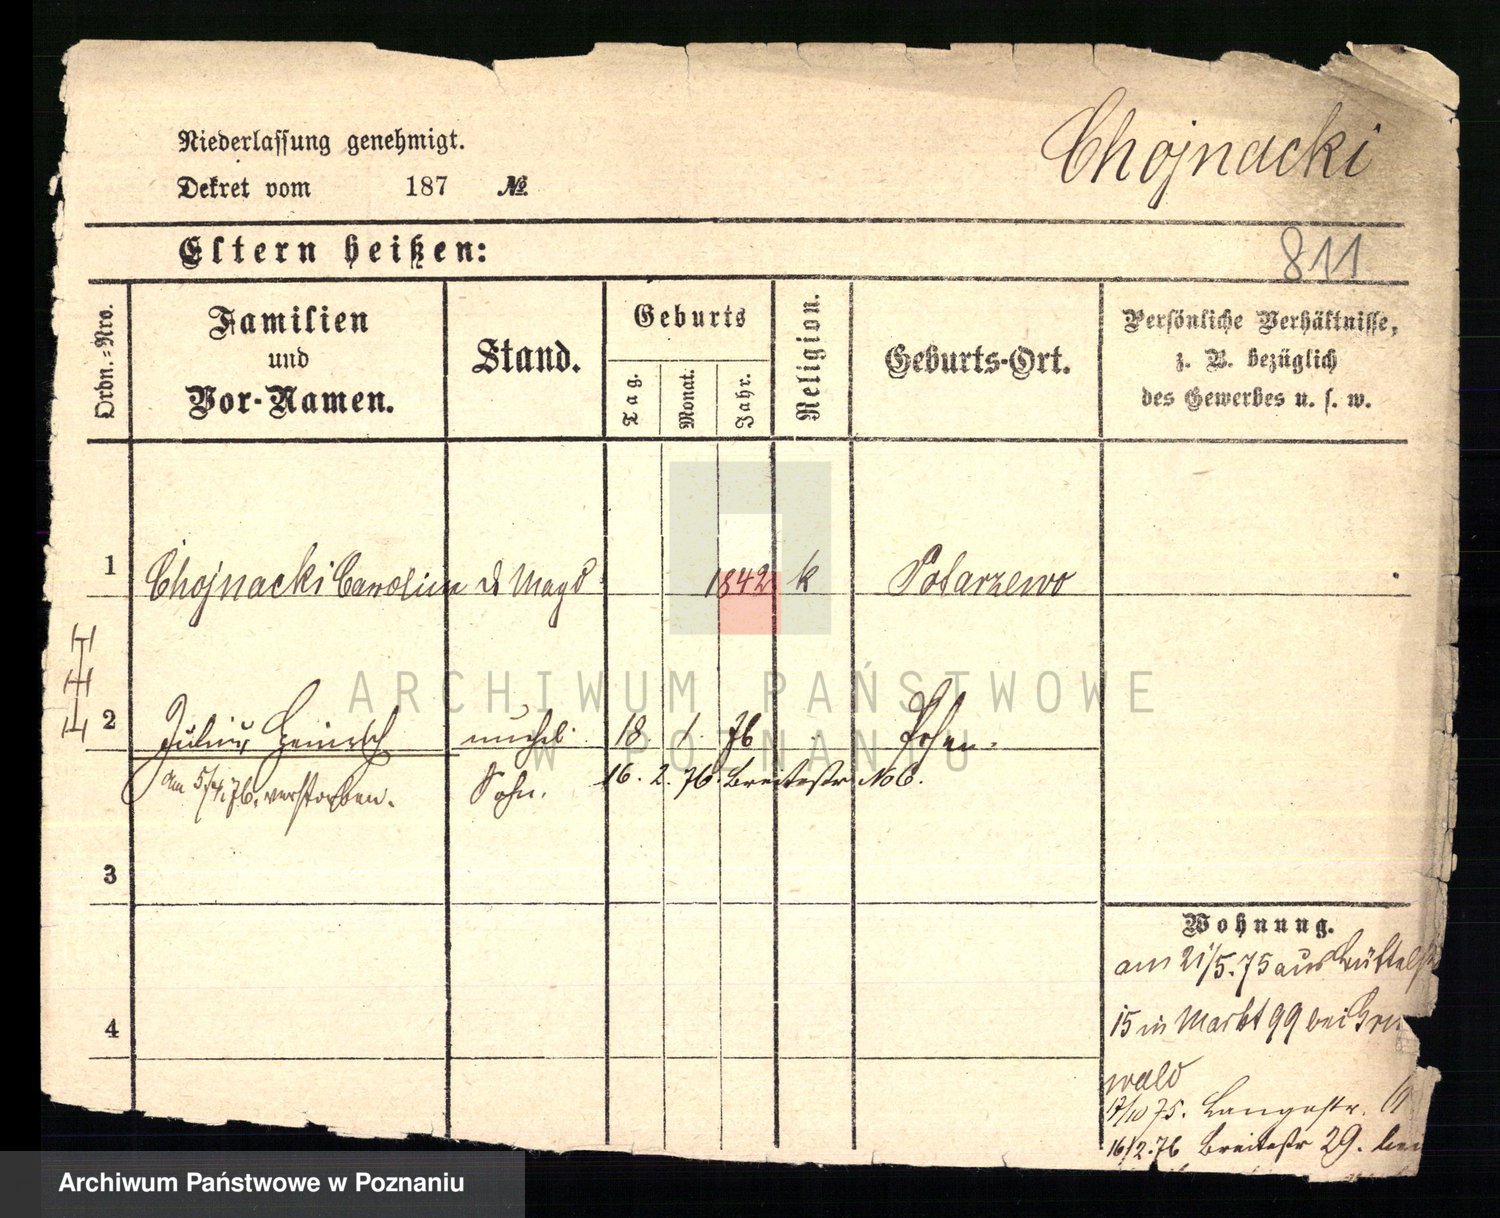 Chojnacki
Niederlassung genehmigt.
Dekret vom 187 №
Eltern heißen:
811
Ordn.=Nro.
Familien
und
Vor-Namen.
Stand.
Geburts
Tag.
Monat.
Jahr.
Religion.
Geburts-Ort.
Persönliche Verhältnisse,
z. B. bezüglich
des Gewerbes u. s. w.
1 Chojnacki Carolina d Magd 1842 k Potarzewo
2 Julius Heinrich unehel. 18 1. 76 Posen.
am 5/4. 76. verstorben. Sohn. 16. 2. 76. Breitestr No 6.
3
4
Wohnung.
am 21/5. 75 aus
15 in Markt 99 bei
wald
17/10 75. Langestr.
16/2. 76 Breitestr 29. bei
ARCHIWUM PAŃSTWOWE
W POZNANIU
Archiwum Państwowe w Poznaniu